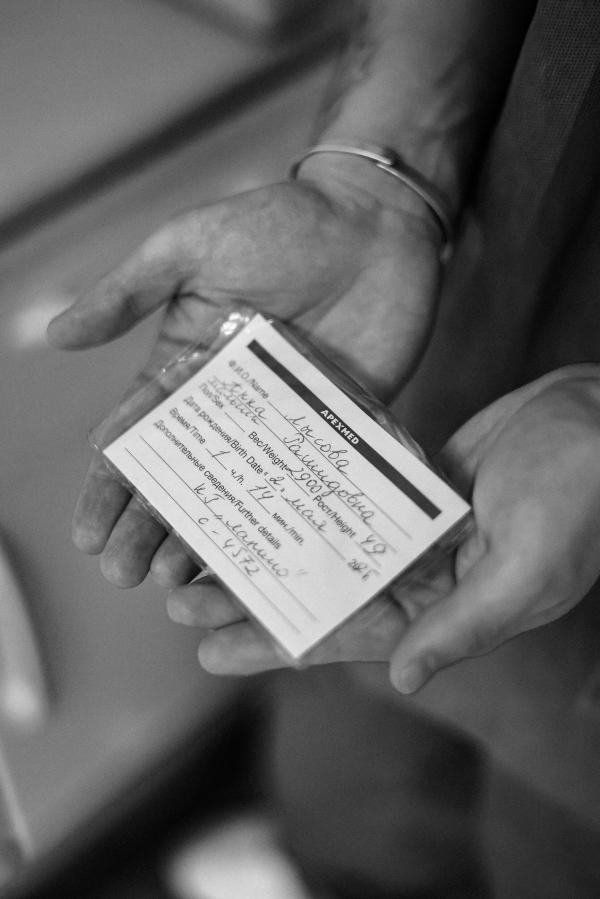 APEXMED
Ф.И.О./Name Лысова
Анна Рашидовна
Пол/Sex Вес/Weight 2900 Рост/Height 49
Дата рождения/Birth Date " 2 " мая 202
Время/Time 1 ч./h. 14 мин./min.
Дополнительные сведения/Further details
КГ "Лапино"
С - 4572